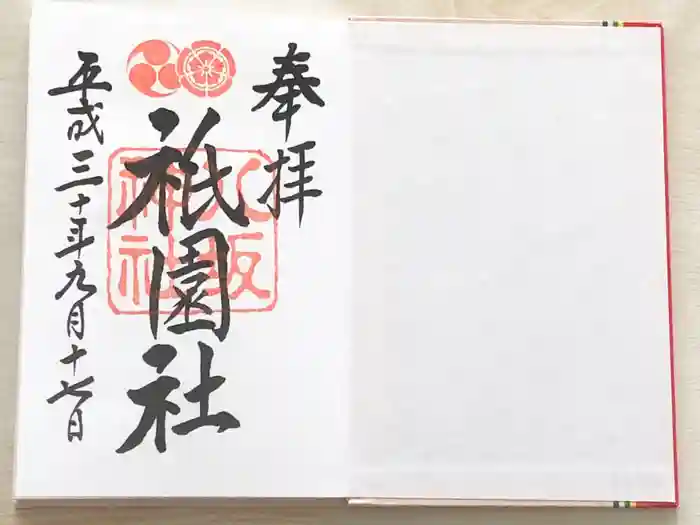 奉拝
八坂神社
祇園社
平成三十年九月十七日